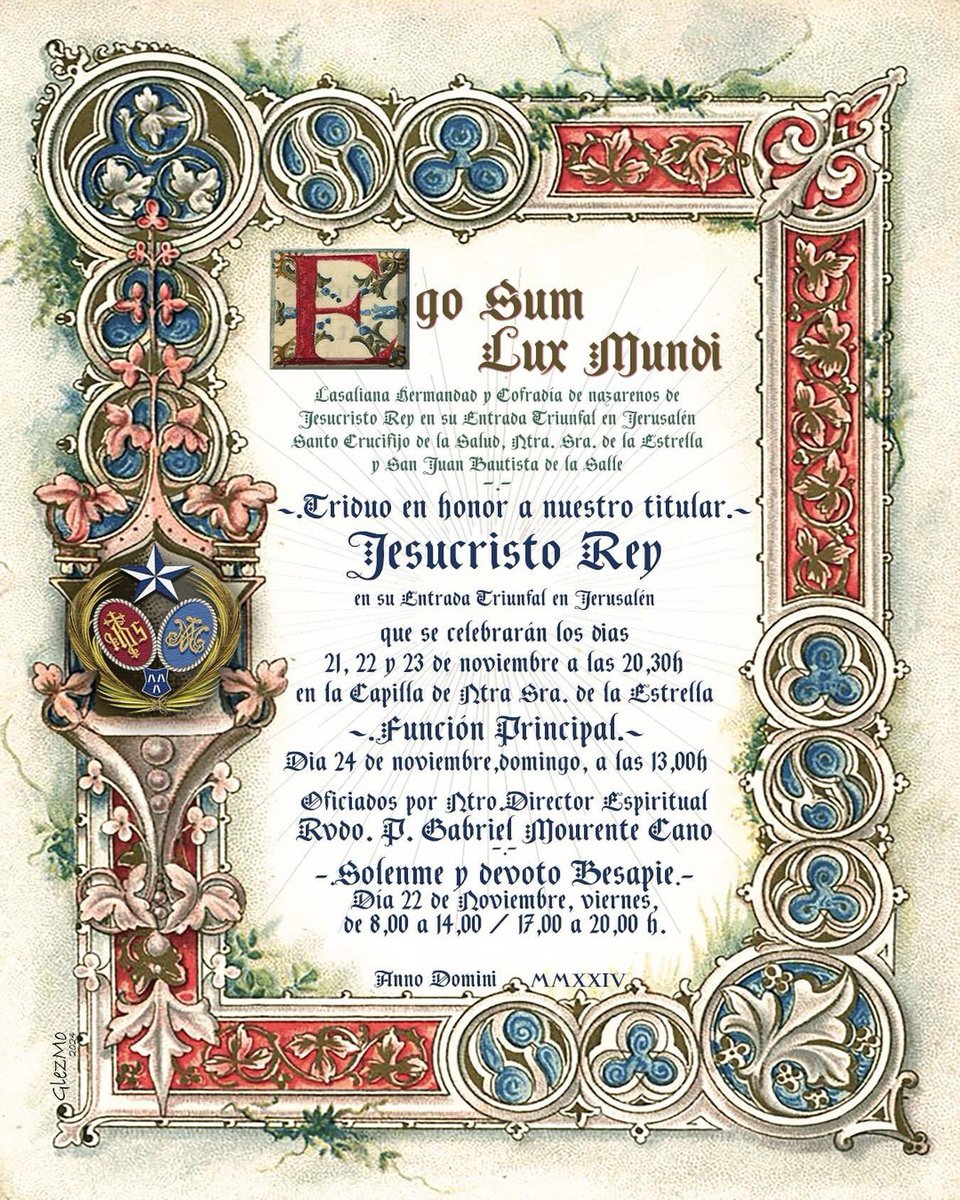 Ego Sum
Lux Mundi
Lasaliana Hermandad y Cofradía de nazarenos de
Jesucristo Rey en su Entrada Triunfal en Jerusalén
Santo Crucifijo de la Salud, Ntra. Sra. de la Estrella
y San Juan Bautista de la Salle
-.-
~.Triduo en honor a nuestro titular.~
Jesucristo Rey
en su Entrada Triunfal en Jerusalén
que se celebrarán los dias
21, 22 y 23 de noviembre a las 20,30h
en la Capilla de Ntra Sra. de la Estrella
~.Función Principal.~
Dia 24 de noviembre,domingo, a las 13,00h
Oficiados por Ntro.Director Espiritual
Rvdo. P. Gabriel Mourente Cano
-.-
-.Solenme y devoto Besapie.-
Día 22 de Noviembre, viernes,
de 8,00 a 14,00 / 17,00 a 20,00 h.
Anno Domini MMXXIV
GlezMo
2024
JHS